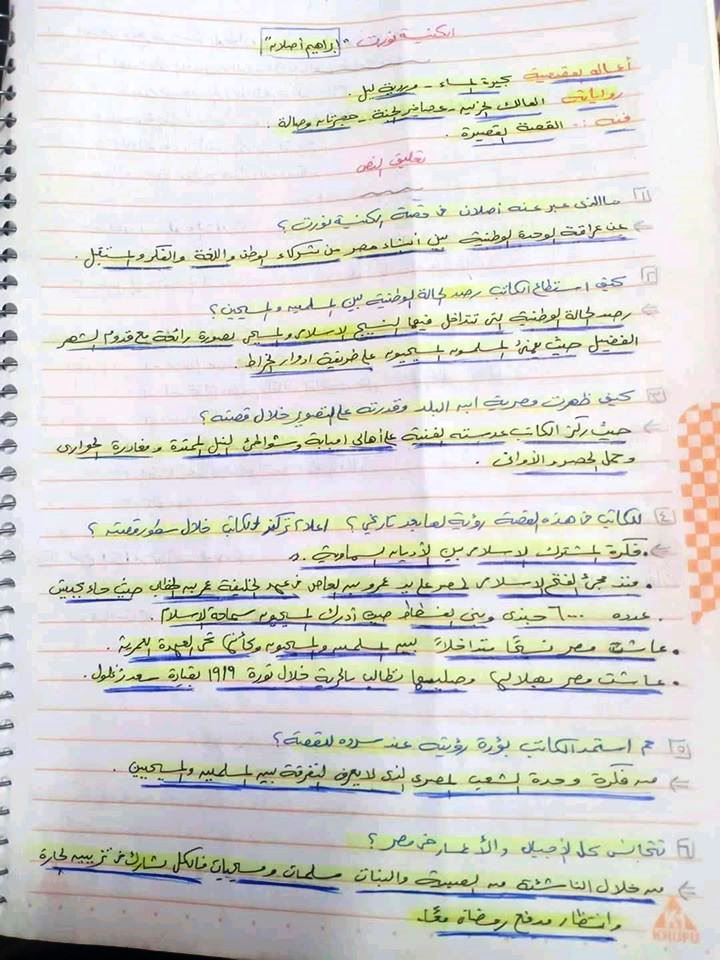 الكنيسة نورت "إبراهيم أصلان"
أعماله القصصية بحيرة المساء - وردية ليل.
رواياته مالك الحزين - عصافير الجنة - حجرتان وصالة.
فنه : القصة القصيرة.
تعليق النص
١ ما الذى عبر عنه أصلان فى قصة الكنيسة نورت؟
عن عراقة الوحدة الوطنية بين أبناء مصر من شركاء الوطن واللغة والفكر والمستقبل.
٢ كيف استطاع الكاتب رصد الحالة الوطنية بين المسلمين والمسيحيين؟
رصد الحالة الوطنية التى تتداخل فيها النسيج الإسلامى والمسيحى بصورة رائعة مع قدوم الشهر
الفضيل حيث يهنئ المسلمون المسيحيون على طريقة ادوار الخراط.
٣ كيف ظهرت مصرية ابن البلد وقدرته على التصوير خلال قصته؟
حيث ركز الكاتب عدسته الفنية على أهالى امبابة وشواطئ النيل الممتدة ومغادرة الحوارى
وحمل الحصر والأوانى.
٤ للكاتب فى هذه القصة رؤية لها بعد تاريخي؟ علام تركز الكاتب خلال سطور قصته؟
فكرة المشترك الإسلامى بين الأديان السماوية.
• منذ مجئ الفتح الإسلامى لمصر على يد عمرو بن العاص فى عهد الخليفة عمر بن الخطاب حيث جاء بجيش
عدده ٦٠٠٠ جندى وبنى الفسطاط حيث أدرك المسيحيون سماحة الإسلام.
• عاشت مصر نسيجًا متداخلاً بين المسلمين والمسيحيون وكأنها تحى العهدة العمرية.
• عاشت مصر بهلالها وصليبها تطالب بالحرية خلال ثورة ١٩١٩ بقيادة سعد زغلول.
٥ مم استمد الكاتب بؤرة رؤيته عند سرده للقصة؟
من فكرة وحدة الشعب المصرى الذى لا يعرف التفرقة بين المسلمين والمسيحيين.
٦ تتجانس كل الأجيال والأعمار فى مصر؟
من خلال الناشئة من الصبية والبنات مسلمات ومسيحيات فالكل يشارك فى تزيين الحارة
وانتظار مدفع رمضان معًا.
KHUFU